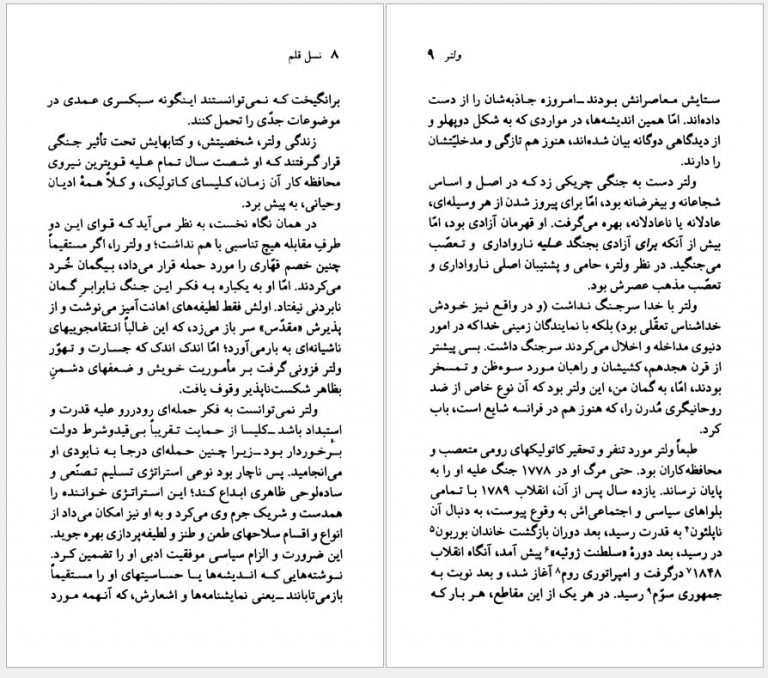 ۸ نسل قلم
برانگیخت که نمی‌توانستند اینگونه سبکسری عمدی در
موضوعات جدّی را تحمل کنند.
زندگی ولتر، شخصیتش، و کتابهایش تحت تأثیر جنگی
قرار گرفتند که او شصت سال تمام علیه قویترین نیروی
محافظه کار آن زمان، کلیسای کاتولیک، و کلاً همهٔ ادیان
وحیانی، به پیش برد.
در همان نگاه نخست، به نظر می آید که قوای این دو
طرفِ مقابله هیچ تناسبی با هم نداشت؛ و ولتر را، اگر مستقیماً
چنین خصم قهّاری را مورد حمله قرار می‌داد، بیگمان خُرد
می‌کردند. امّا او به یکباره به فکر این جنگ نابرابرِ گمان
نابردنی نیفتاد. اولش فقط لطیفه‌های اهانت‌آمیز می‌نوشت و از
پذیرش «مقدّس» سر باز می‌زد، که این غالباً انتقامجوییهای
ناشیانه‌ای به بارمی‌آورد؛ امّا اندک اندک که جسارت و تهوّر
ولتر فزونی گرفت بر مأموریت خویش و ضعفهای دشمنِ
بظاهر شکست‌ناپذیر وقوف یافت.
ولتر نمی‌توانست به فکر حمله‌ای رودررو علیه قدرت و
استبداد باشد ــ کلیسا از حمایت تقریباً بی‌قیدوشرط دولت
برخوردار بود ــ زیرا چنین حمله‌ای درجا به نابودی او
می‌انجامید. پس ناچار بود نوعی استراتژی تسلیم تصنّعی و
ساده‌لوحی ظاهری ابداع کند؛ این استراتژی خواننده را
همدست و شریک جرم وی می‌کرد و به او نیز امکان می‌داد از
انواع و اقسام سلاحهای طعن و طنز و لطیفه‌پردازی بهره جوید.
این ضرورت و الزام سیاسی موفقیت ادبی او را تضمین کرد.
نوشته‌هایی که اندیشه‌ها یا حساسیتهای او را مستقیماً
بازمی‌تابانند ــ یعنی نمایشنامه‌ها و اشعارش، که آنهمه مورد
ولتر ۹
ستایش معاصرانش بودند ــ امروزه جاذبه‌شان را از دست
داده‌اند. امّا همین اندیشه‌ها، در مواردی که به شکل دوپهلو و
از دیدگاهی دوگانه بیان شده‌اند، هنوز هم تازگی و مدخلیّتشان
را دارند.
ولتر دست به جنگی چریکی زد که در اصل و اساس
شجاعانه و بیغرضانه بود، امّا برای پیروز شدن از هر وسیله‌ای،
عادلانه یا ناعادلانه، بهره می‌گرفت. او قهرمان آزادی بود، امّا
بیش از آنکه برای آزادی بجنگد علیه نارواداری و تعصّب
می‌جنگید. در نظر ولتر، حامی و پشتیبان اصلی نارواداری و
تعصّب مذهب عصرش بود.
ولتر با خدا سرجنگ نداشت (و در واقع نیز خودش
خداشناس تعقّلی بود) بلکه با نمایندگان زمینی خدا که در امور
دنیوی مداخله و اخلال می‌کردند سرجنگ داشت. بسی پیشتر
از قرن هجدهم، کشیشان و راهبان مورد سوءظن و تمسخر
بودند، امّا، به گمان من، این ولتر بود که آن نوع خاص از ضد
روحانیگری مُدرن را، که هنوز هم در فرانسه شایع است، باب
کرد.
طبعاً ولتر مورد تنفر و تحقیر کاتولیکهای رومی متعصب و
محافظه‌کاران بود. حتی مرگ او در ۱۷۷۸ جنگ علیه او را به
پایان نرساند. یازده سال پس از آن، انقلاب ۱۷۸۹ با تمامی
بلواهای سیاسی و اجتماعی‌اش به وقوع پیوست، به دنبال آن
ناپلئون۴ به قدرت رسید، بعد دوران بازگشت خاندان بوربون۵
در رسید، بعد دورهٔ «سلطنت ژوئیه»۶ پیش آمد، آنگاه انقلاب
۱۸۴۸۷ درگرفت و امپراتوری روم۸ آغاز شد، و بعد نوبت به
جمهوری سوّم۹ رسید. در هر یک از این مقاطع، هر بار که